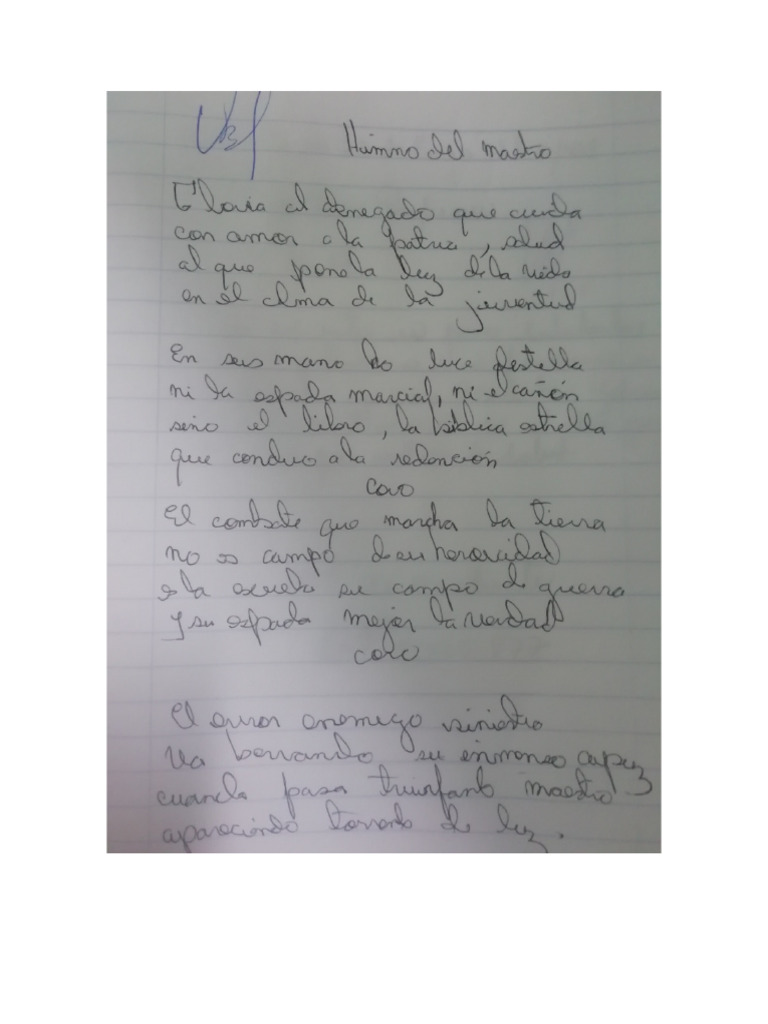 Himno del maestro
Gloria al denegado que cunda
con amor a la patria, salud
al que pone la luz de la vida
en el alma de la juventud
En sus mano No luce destella
ni la espada marcial, ni el cañón
sino el libro, la bíblica estrella
que conduce a la redención
Coro
El combate que marcha la tierra
no es campo de su heroicidad
es la escuela su campo de guerra
y su espada mejor la verdad
coro
El error enemigo siniestro
va borrando su inmenso capuz
cuando pasa triunfante maestro
apareciendo torrente de luz.